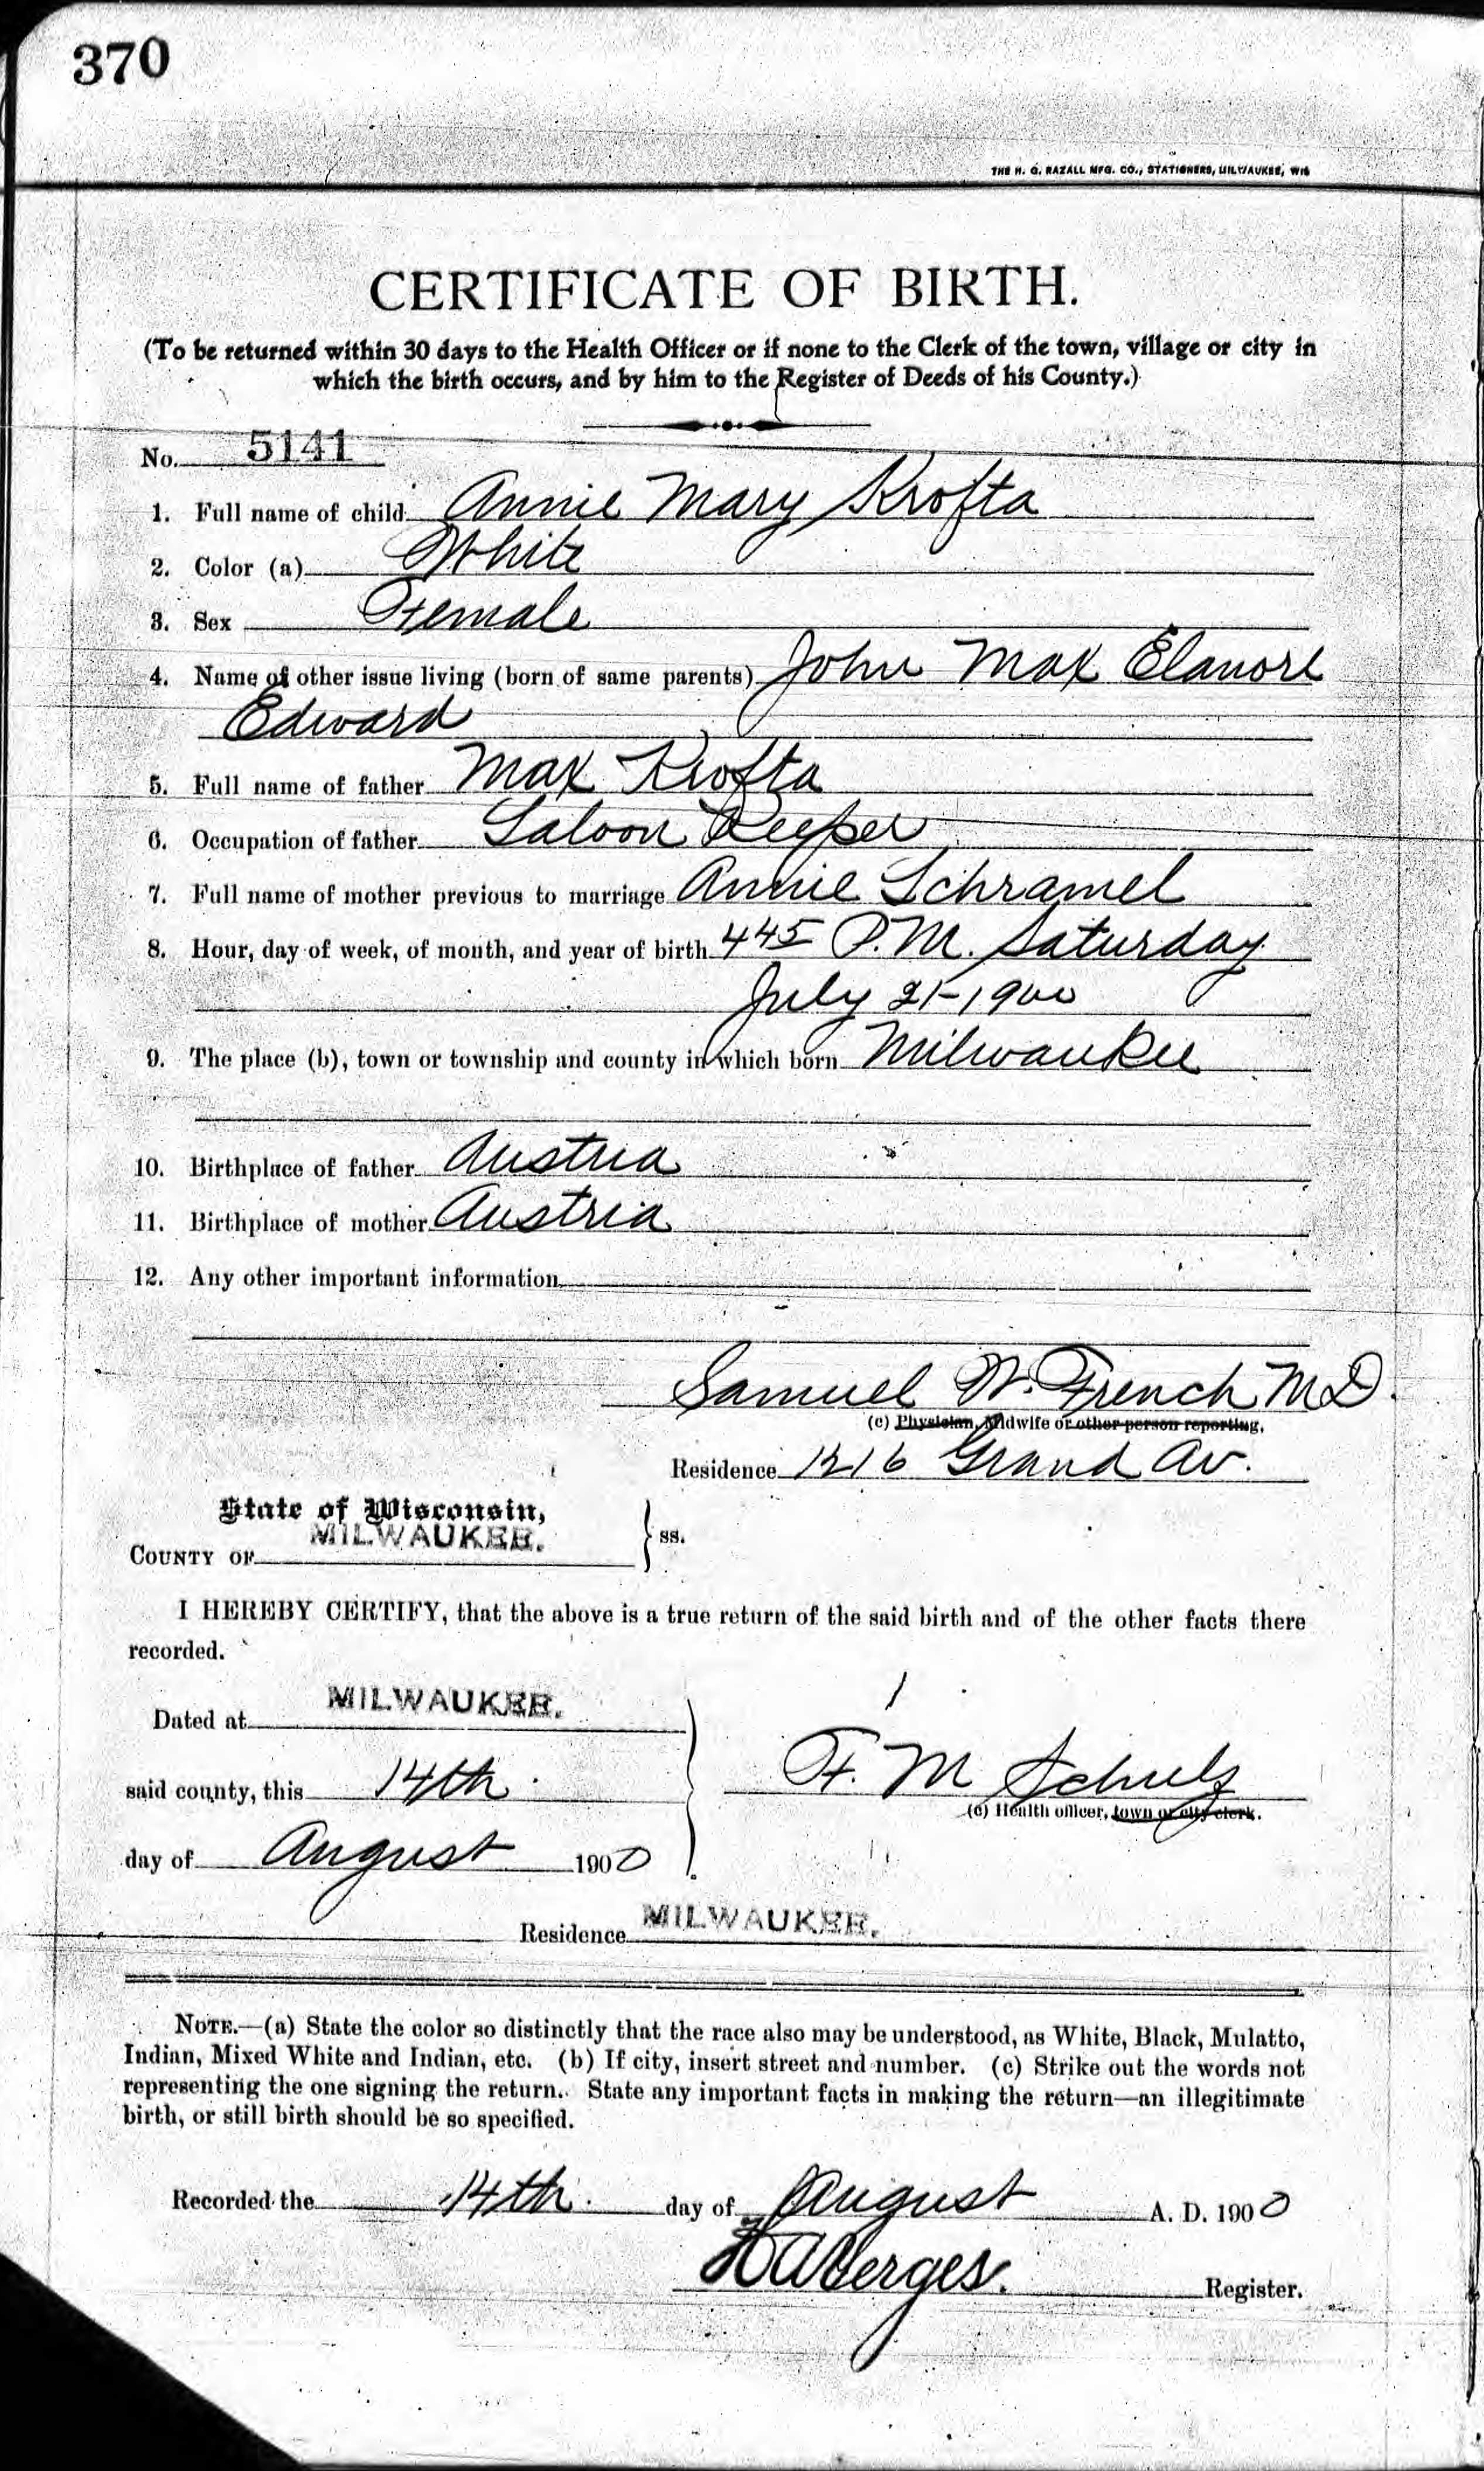 370
THE H. G. RAZALL MFG. CO., STATIONERS, MILWAUKEE, WIS
CERTIFICATE OF BIRTH.
(To be returned within 30 days to the Health Officer or if none to the Clerk of the town, village or city in
which the birth occurs, and by him to the Register of Deeds of his County.)
No. 5141
1. Full name of child Annie Mary Krofta
2. Color (a) White
3. Sex Female
4. Name of other issue living (born of same parents) John Max Elanore
Edward
5. Full name of father Max Krofta
6. Occupation of father Saloon Keeper
7. Full name of mother previous to marriage Annie Schramel
8. Hour, day of week, of month, and year of birth 445 P.M. Saturday
July 21-1900
9. The place (b), town or township and county in which born Milwaukee
10. Birthplace of father Austria
11. Birthplace of mother Austria
12. Any other important information
Samuel W. French MD.
(c) Physician, Midwife or other person reporting.
Residence 1216 Grand Av.
State of Wisconsin,
COUNTY OF MILWAUKEE. } ss.
I HEREBY CERTIFY, that the above is a true return of the said birth and of the other facts there
recorded.
Dated at MILWAUKEE.
said county, this 14th F. M Schulz
(c) Health officer, town or city clerk.
day of August 1900
Residence MILWAUKEE.
NOTE.—(a) State the color so distinctly that the race also may be understood, as White, Black, Mulatto,
Indian, Mixed White and Indian, etc. (b) If city, insert street and number. (c) Strike out the words not
representing the one signing the return. State any important facts in making the return—an illegitimate
birth, or still birth should be so specified.
Recorded the 14th day of August A. D. 1900
Register.